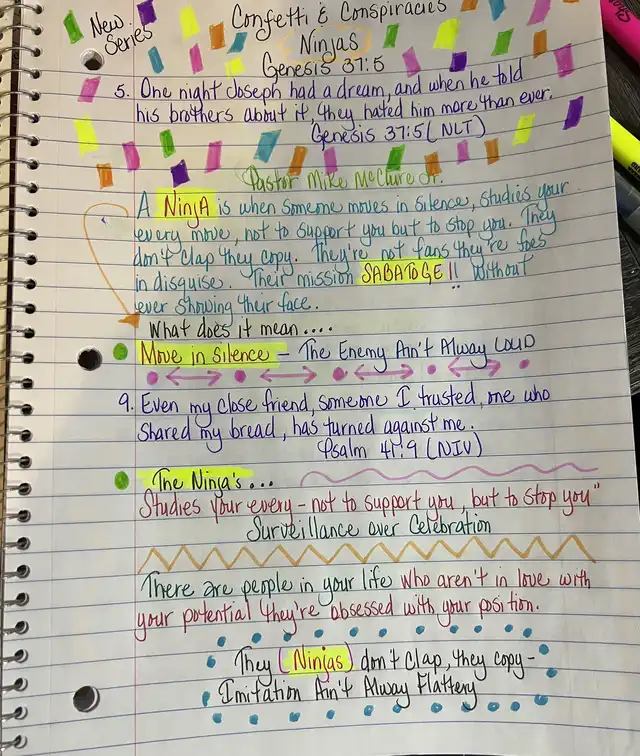 New Series
Confetti & Conspiracies
Ninjas
Genesis 37:5
5. One night Joseph had a dream, and when he told
his brothers about it, they hated him more than ever.
Genesis 37:5 (NLT)
Pastor Mike McClure Jr.
A NinjA is when someone moves in silence, studies your
every move, not to support you but to stop you. They
don't clap they copy. They're not fans they're foes
in disguise. Their mission SABATOGE!! without
ever showing their face.
What does it mean....
Move in Silence - The Enemy Ain't Alway LOUD
9. Even my close friend, someone I trusted, one who
shared my bread, has turned against me.
Psalm 41:9 (NIV)
The Ninja's...
Studies your every - not to support you, but to stop you"
Surveillance over Celebration
There are people in your life who aren't in love with
your potential they're obsessed with your position.
They (Ninjas) don't clap, they copy-
Imitation Ain't Alway Flattery